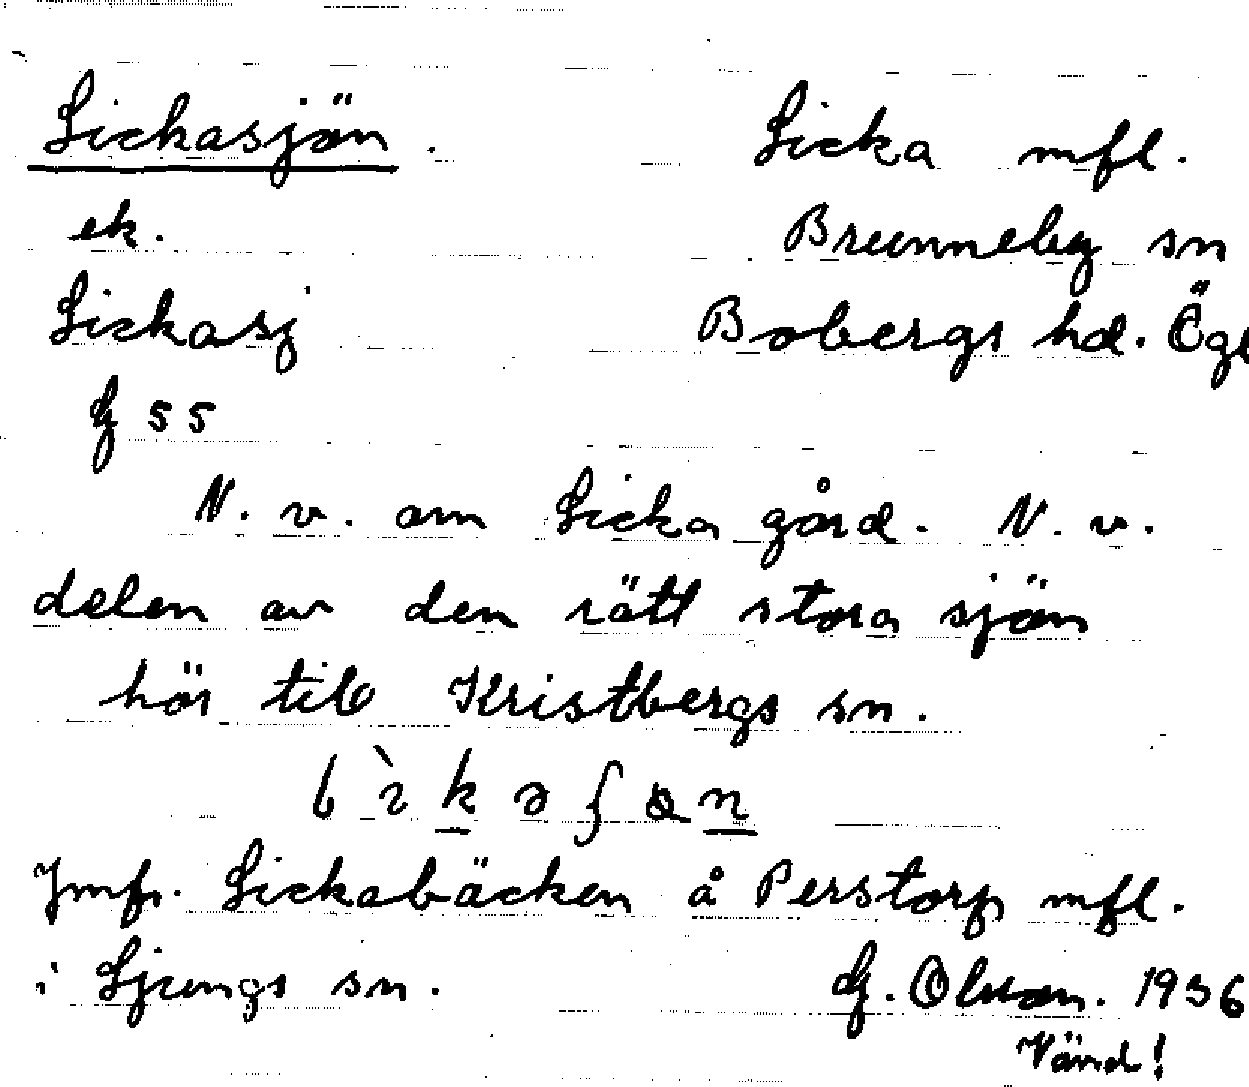 Lickasjön. Licka mfl.
ek. Brunneby sn
Lickasj Bobergs hd. Ögl
G 55
N. v. om Licka gård. N. v.
delen av den rätt stora sjön
hör till Kristbergs sn.
Jmfr. Lickabäcken å Perstorp mfl.
i Ljungs sn. G. Olsson. 1936
Vänd!